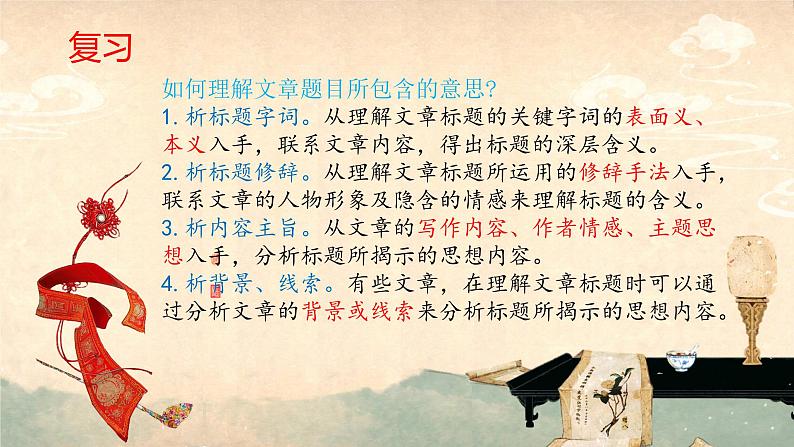 复习
如何理解文章题目所包含的意思?
1.析标题字词。从理解文章标题的关键字词的表面义、
本义入手，联系文章内容，得出标题的深层含义。
2.析标题修辞。从理解文章标题所运用的修辞手法入手，
联系文章的人物形象及隐含的情感来理解标题的含义。
3.析内容主旨。从文章的写作内容、作者情感、主题思
想入手，分析标题所揭示的思想内容。
4.析背景、线索。有些文章，在理解文章标题时可以通
过分析文章的背景或线索来分析标题所揭示的思想内容。